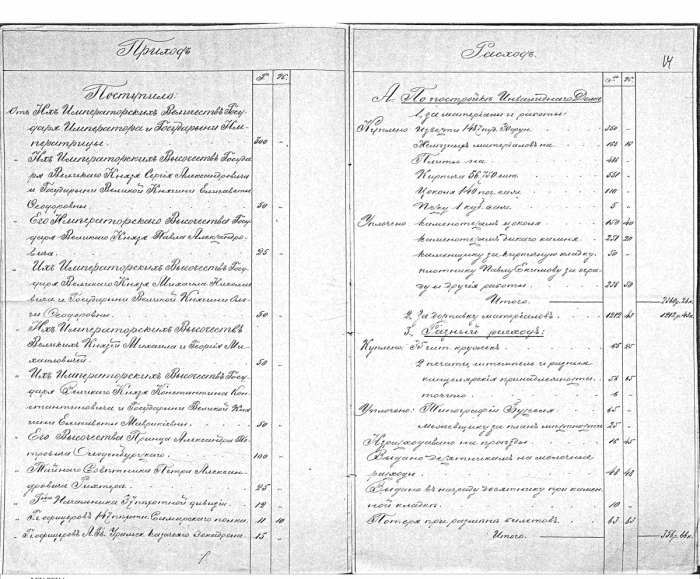 Приходъ
Р. К.
Поступило:
Отъ Ихъ Императорскихъ Величествъ Госу-
даря Императора и Государыни Им-
ператрицы. 300 -
" Ихъ Императорскихъ Высочествъ Госуда-
ря Великаго Князя Сергія Александровича
и Государыни Великой Княгини Елисаветы
Ѳеодоровны. 50 -
" Его Императорскаго Высочества Госу-
даря Великаго Князя Павла Александро-
вича. 25 -
" Ихъ Императорскихъ Высочествъ Госу-
даря Великаго Князя Михаила Николае-
вича и Государыни Великой Княгини Оль-
ги Ѳеодоровны. 50 -
" Ихъ Императорскихъ Высочествъ
Великихъ Князей Михаила и Георгія Ми-
хаиловичей. 50 -
" Ихъ Императорскихъ Высочествъ Госу-
даря Великаго Князя Константина Кон-
стантиновича и Государыни Великой Кня-
гини Елисаветы Маврикіевны. 50 -
" Его Высочества Принца Александра Пе-
тровича Ольденбургскаго. 100 -
" Тайнаго Совѣтника Петра Алексан-
дровича Рихтера. 25 -
" Начальника 37 пѣхотной дивизіи. 12 -
" Гг. офицеровъ 147 пѣхотн. Самарскаго полка. 11 10
" Гг. офицеровъ Л. Гв. Уральск. казачьяго эскадрона. 15 -
Расходъ.
Р. К.
А. По постройкѣ Инвалиднаго Дома
1. за матеріалы и работы:
Куплено: Извести 350 -
матеріаловъ на 165 16
Плиты на 441 -
Кирпича 56,750 шт. 551 -
Цоколя 140 пог. саж. 110 -
Песку 1 куб. саж. 5 -
Уплочено каменотесамъ цоколя 150 40
каменотесамъ дикаго камня 251 20
каменщику за кирпичную кладку 50 -
плотнику Павлу Екимову за огра-
ду и другія работы. 50
Итого.
2. За доставку матеріаловъ.
3. Разный расходъ:
Куплено: 35 шт. кружекъ. 65 25
2 печати, штемпель и разныя
канцелярскія принадлежности. 56 65
Уплочено: Типографіи 65 -
за планъ мѣстности 25 -
Израсходовано на проѣзды 16 45
Выдано десятникамъ на мелочные
расходы. 48 48
Выдано въ награду десятнику при камен-
ной кладкѣ. 10 -
Потеря при размѣнѣ билетовъ.
Итого.